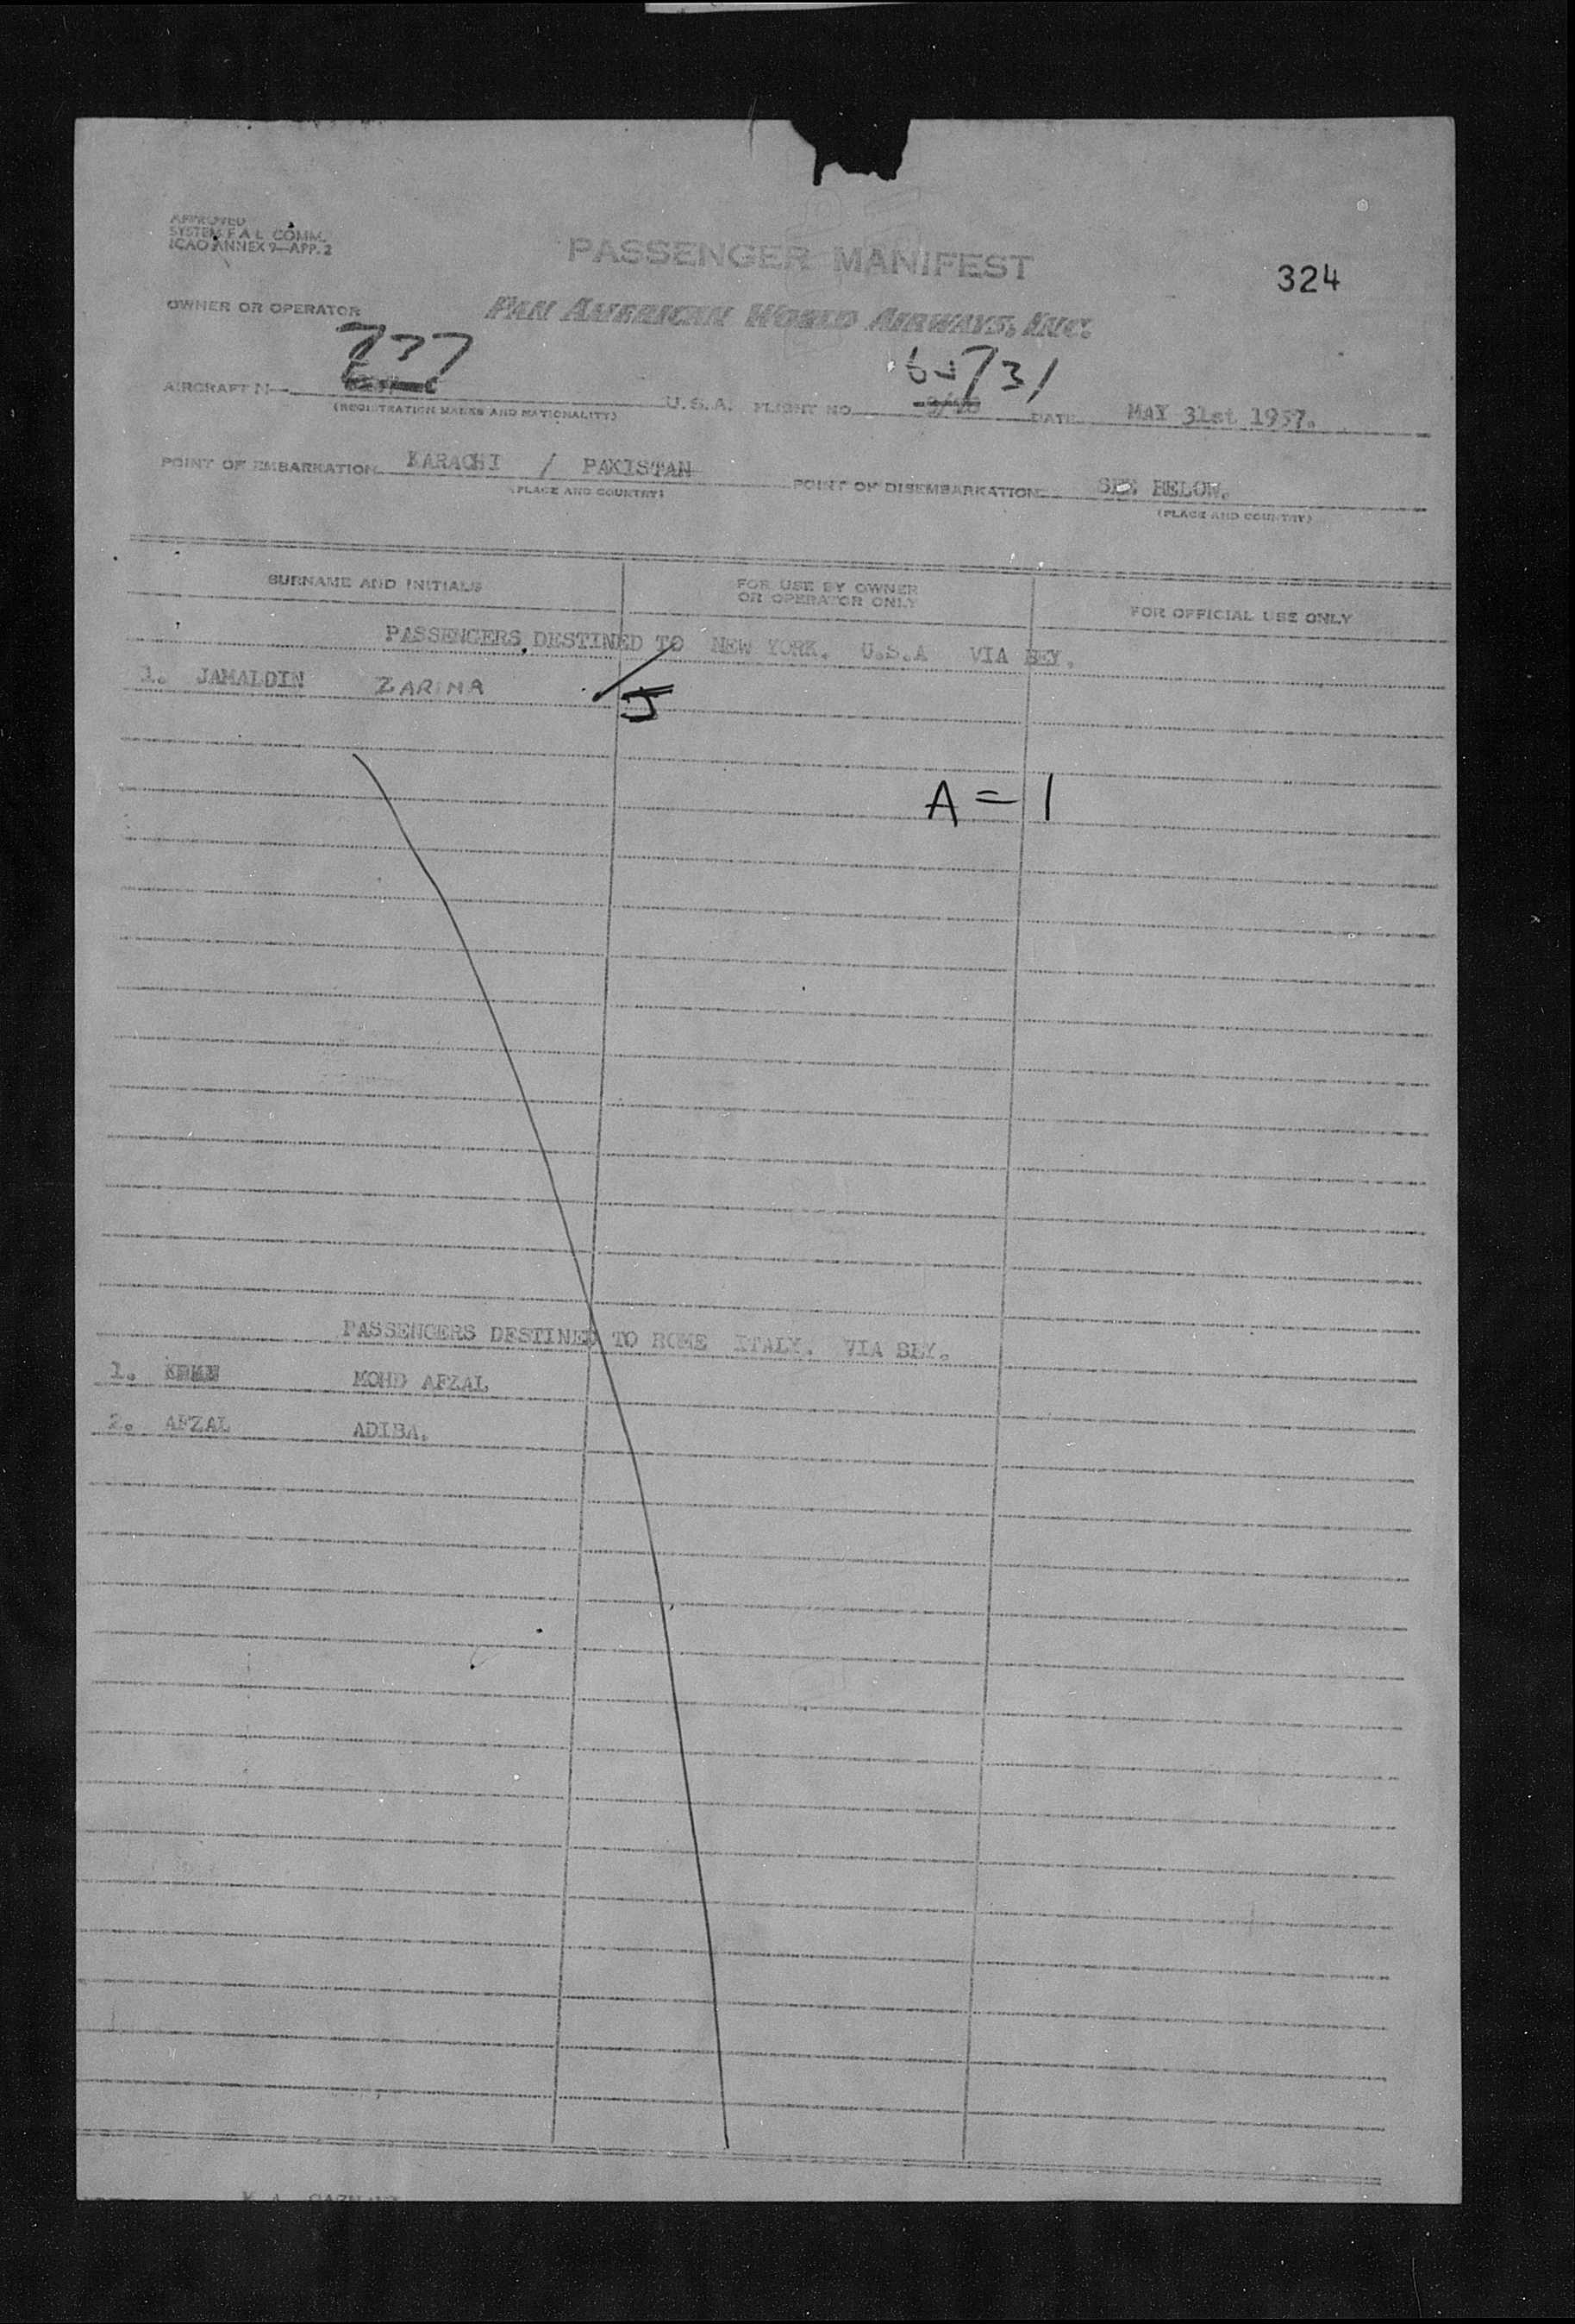 APPROVED
SYSTEM F A L COMM.
ICAO ANNEX 9—APP. 2
PASSENGER MANIFEST
324
OWNER OR OPERATOR PAN AMERICAN WORLD AIRWAYS, INC.
777
/31
AIRCRAFT N— U.S.A. FLIGHT NO. DATE MAY 31st 1957.
(REGISTRATION MARKS AND NATIONALITY)
POINT OF EMBARKATION KARACHI / PAKISTAN POINT OF DISEMBARKATION SEE BELOW.
(PLACE AND COUNTRY) (PLACE AND COUNTRY)
SURNAME AND INITIALS FOR USE BY OWNER OR OPERATOR ONLY FOR OFFICIAL USE ONLY
PASSENGERS DESTINED TO NEW YORK. U.S.A VIA BEY.
1. JAMALDIN ZARINA
5
A = 1
PASSENGERS DESTINED TO ROME ITALY. VIA BEY.
1. MOHD AFZAL
2. AFZAL ADIBA.